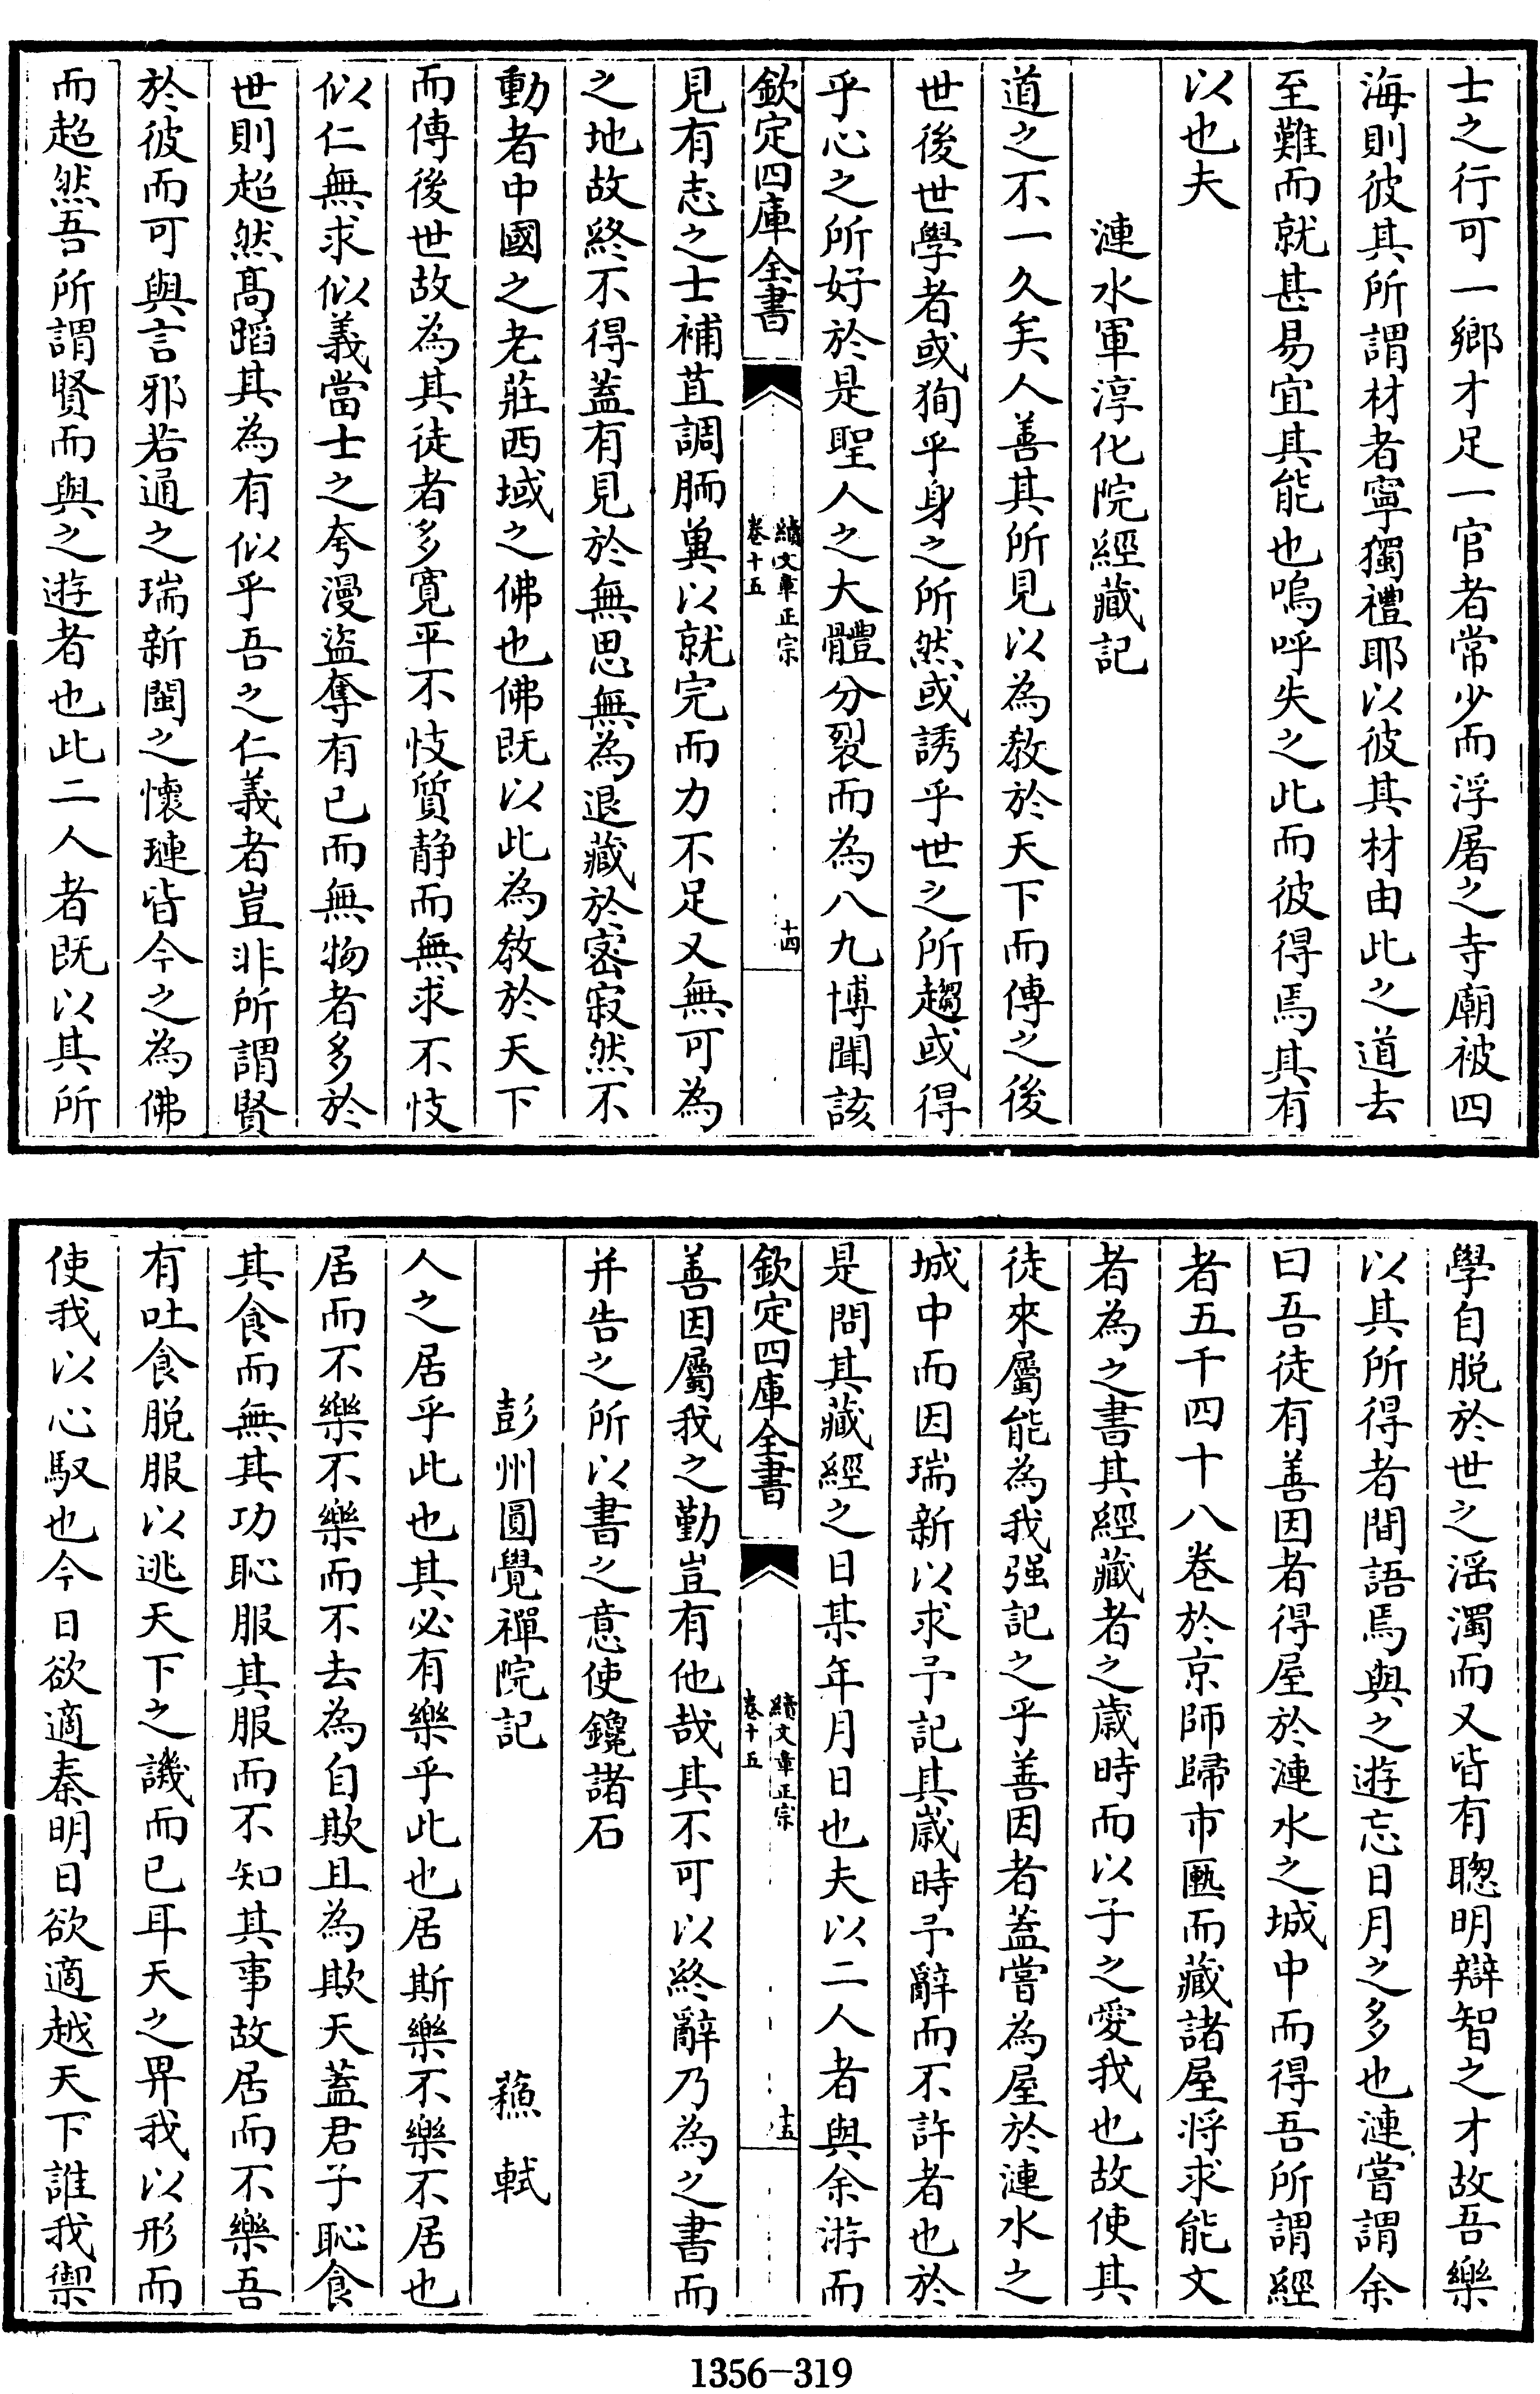 士之行可一鄉才足一官者常少而浮屠之寺廟被四
海則彼其所謂材者寧獨禮耶以彼其材由此之道去
至難而就甚易宜其能也嗚呼失之此而彼得焉其有
以也夫
漣水軍淳化院經藏記
道之不一久矣人善其所見以為教於天下而傳之後
世後世學者或狥乎身之所然或誘乎世之所趨或得
乎心之所好於是聖人之大體分裂而為八九博聞該
欽定四庫全書
續文章正宗
卷十五
十四
見有志之士補苴調胹冀以就完而力不足又無可為
之地故終不得蓋有見於無思無為退藏於密寂然不
動者中國之老莊西域之佛也佛既以此為教於天下
而傳後世故為其徒者多寛平不忮質静而無求不忮
似仁無求似義當士之夸漫盜奪有已而無物者多於
世則超然髙蹈其為有似乎吾之仁義者豈非所謂賢
於彼而可與言邪若通之瑞新閩之懷璉皆今之為佛
而超然吾所謂賢而與之遊者也此二人者既以其所
學自脱於世之滛濁而又皆有聰明辯智之才故吾樂
以其所得者間語焉與之遊忘日月之多也漣嘗謂余
曰吾徒有善因者得屋於漣水之城中而得吾所謂經
者五千四十八卷於京師歸市匭而藏諸屋将求能文
者為之書其經藏者之歲時而以子之愛我也故使其
徒來屬能為我强記之乎善因者蓋嘗為屋於漣水之
城中而因瑞新以求予記其歲時予辭而不許者也於
是問其藏經之日某年月日也夫以二人者與余游而
欽定四庫全書
續文章正宗
卷十五
十五
善因屬我之勤豈有他哉其不可以終辭乃為之書而
并告之所以書之意使鑱諸石
彭州圓覺禪院記 蘓軾
人之居乎此也其必有樂乎此也居斯樂不樂不居也
居而不樂不樂而不去為自欺且為欺天蓋君子恥食
其食而無其功恥服其服而不知其事故居而不樂吾
有吐食脱服以逃天下之譏而已耳天之畀我以形而
使我以心馭也今日欲適秦明日欲適越天下誰我禦
1356—319